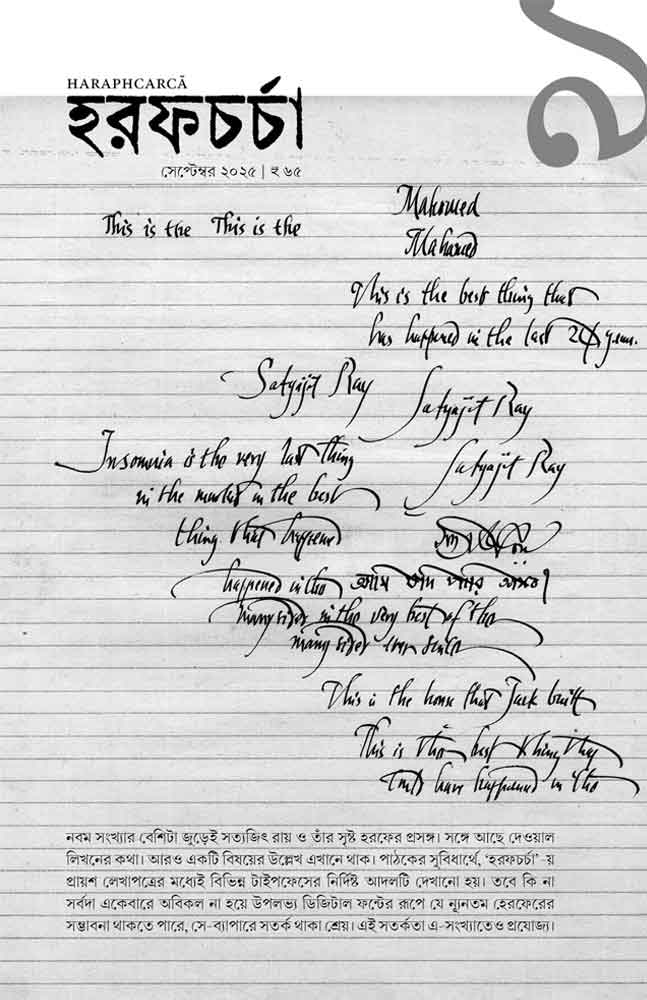 ৯
HARAPHCARCĀ
হরফচর্চা
সেপ্টেম্বর ২০২৫ | ₹ ৬৫
Mahomed
This is the This is the
Mahomed
This is the best thing that
has happened in the last 20 years.
Satyajit Ray
Satyajit Ray
Insomnia is the very last thing
Satyajit Ray
in the market in the best
thing that happened
happened in the আমি যদি পারি আসব।
many sides in the very best of the
many sides ever since
This is the house that Jack built
This is the best thing they
could have happened in the
নবম সংখ্যার বেশিটা জুড়েই সত্যজিৎ রায় ও তাঁর সৃষ্ট হরফের প্রসঙ্গ। সঙ্গে আছে দেওয়াল
লিখনের কথা। আরও একটি বিষয়ের উল্লেখ এখানে থাক। পাঠকের সুবিধার্থে, ‘হরফচর্চা’-য়
প্রায়শ লেখাপত্রের মধ্যেই বিভিন্ন টাইপফেসের নির্দিষ্ট আদলটি দেখানো হয়। তবে কি না
সর্বদা একেবারে অবিকল না হয়ে উপলভ্য ডিজিটাল ফন্টের রূপে যে ন্যূনতম হেরফেরের
সম্ভাবনা থাকতে পারে, সে-ব্যাপারে সতর্ক থাকা শ্রেয়। এই সতর্কতা এ-সংখ্যাতেও প্রযোজ্য।